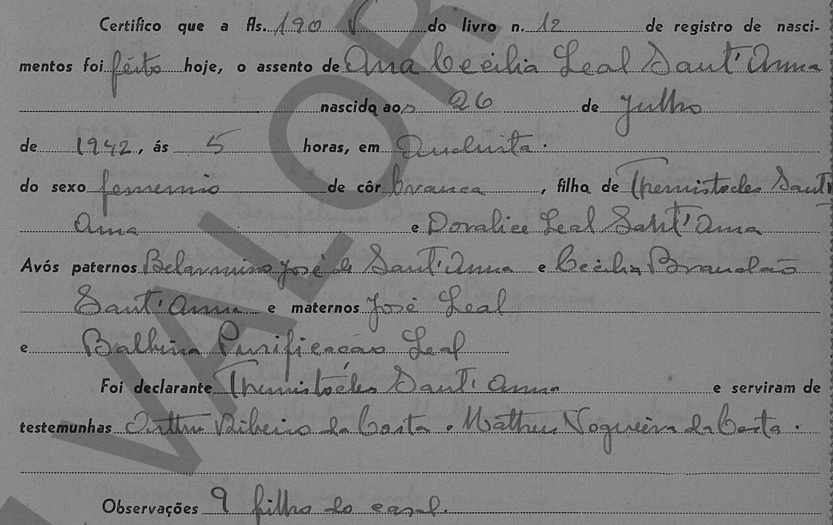 Certifico que a fls. 190 V do livro n. 12 de registro de nasci-
mentos foi feito hoje, o assento de Ana Cecilia Leal Sant'Anna
nascida aos 26 de Julho
de 1942, ás 5 horas, em
do sexo femenino de côr branca, filha de Themistocles Sant'
Ana e Doralice Leal Sant'Anna
Avós paternos Belarmino José de Sant'Anna e Cecilia Brandão
Sant'Anna e maternos José Leal
e Balbina Purificação Leal
Foi declarante Themistocles Sant'Anna e serviram de
testemunhas Arthur Ribeiro da Costa. Matheus Nogueira da Costa.
Observações 9 filho do casal.
VALOR